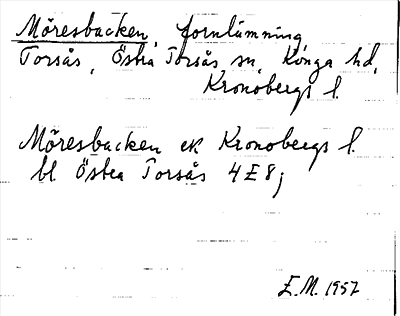 Möresbacken, fornlämning,
Torsås, Östra Torsås sn, Konga hd,
Kronobergs l.
Möresbacken ek Kronobergs l.
bl Östra Torsås 4E8;
E.M. 1957